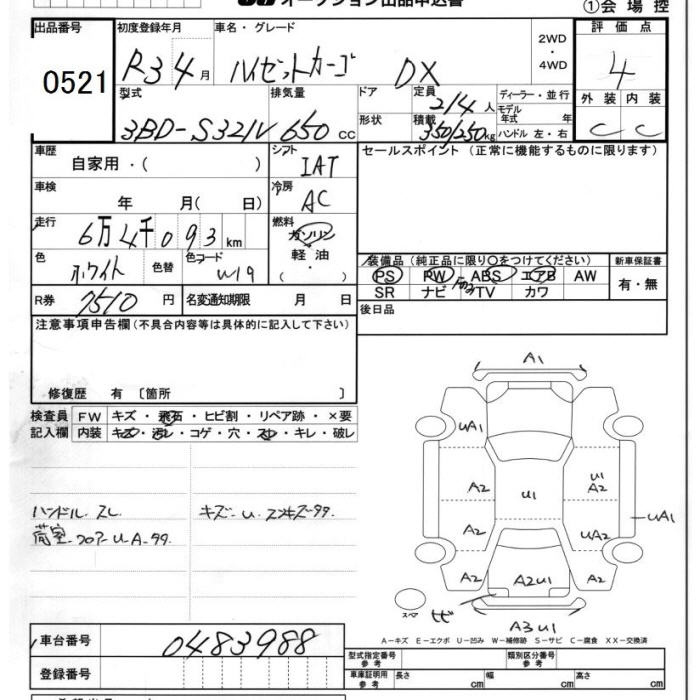 オークション出品申込書
①会場控
出品番号 初度登録年月 車名・グレード 2WD ・ 4WD 評価点
0521 R3 4月 ハイゼットカーゴ DX 4
型式 排気量 ドア 定員 2/4人 ディーラー・並行 外装 内装
3BD-S321V 650cc 形状 積載 350/250kg モデル年式 年 ハンドル 左・右 C C
車歴 自家用・( ) シフト IAT セールスポイント (正常に機能するものに限ります)
車検 年 月( 日) 冷房 AC
走行 6万4千093km 燃料 ガソリン 軽油 ・ ( )
色 ホワイト 色替 色コード W19 装備品(純正品に限り○をつけてください) 新車保証書
PS PW ABS エアB AW 有・無
SR ナビ TV カワ
R券 7510円 名変通知期限 月 日 後日品
注意事項申告欄(不具合内容等は具体的に記入して下さい)
修復歴 有 〔箇所 〕
検査員 FW キズ・飛石・ヒビ割・リペア跡・×要
記入欄 内装 キズ・汚レ・コゲ・穴・スレ・キレ・破レ
ハンドル. スレ キズ-U.
荷室. フロアーUA
A1
UA1
A2 U1 U1 A2
A2 UA2 UA1
A2 A2U1 A2
スペア ヒビ
A3 U1
A-キズ E-エクボ U-凹み W-補修跡 S-サビ C-腐食 XX-交換済
車台番号 0483988 型式指定番号 参考 類別区分番号 参考
登録番号 車庫証明用 参考 長さ cm 幅 cm 高さ cm